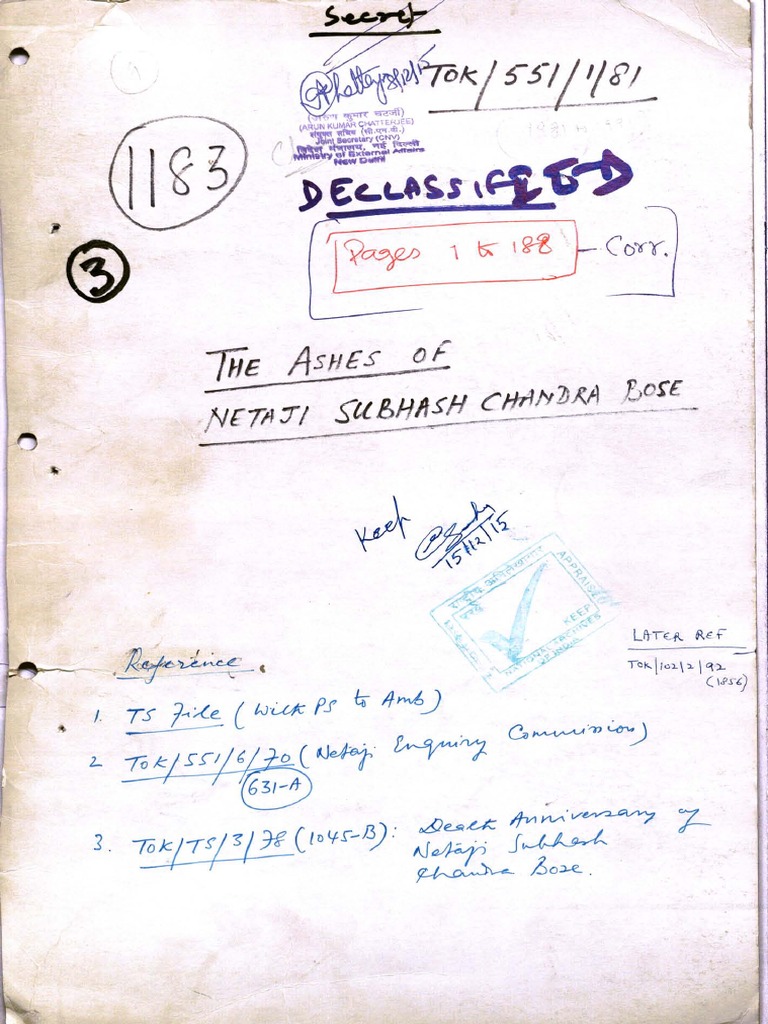 Secret
TOK/551/1/81
(अरुण कुमार चटर्जी)
(ARUN KUMAR CHATTERJEE)
संयुक्त सचिव (सी.एन.वी.)
Joint Secretary (CNV)
विदेश मंत्रालय, नई दिल्ली
Ministry of External Affairs
New Delhi
1183
DECLASSIFIED
Pages 1 to 188 - Corr.
3
THE ASHES OF
NETAJI SUBHASH CHANDRA BOSE
Keep
15/12/15
राष्ट्रीय अभिलेखागार
APPRAISED
KEEP
NATIONAL ARCHIVES
OF INDIA
LATER REF
TOK/102/2/92
(1856)
Reference.
1. TS File (With PS to Amb)
2 TOK/551/6/70 (Netaji Enquiry Commission)
631-A
3. TOK/TS/3/78 (1045-B): Death Anniversary of
Netaji Subhash
Chandra Bose.